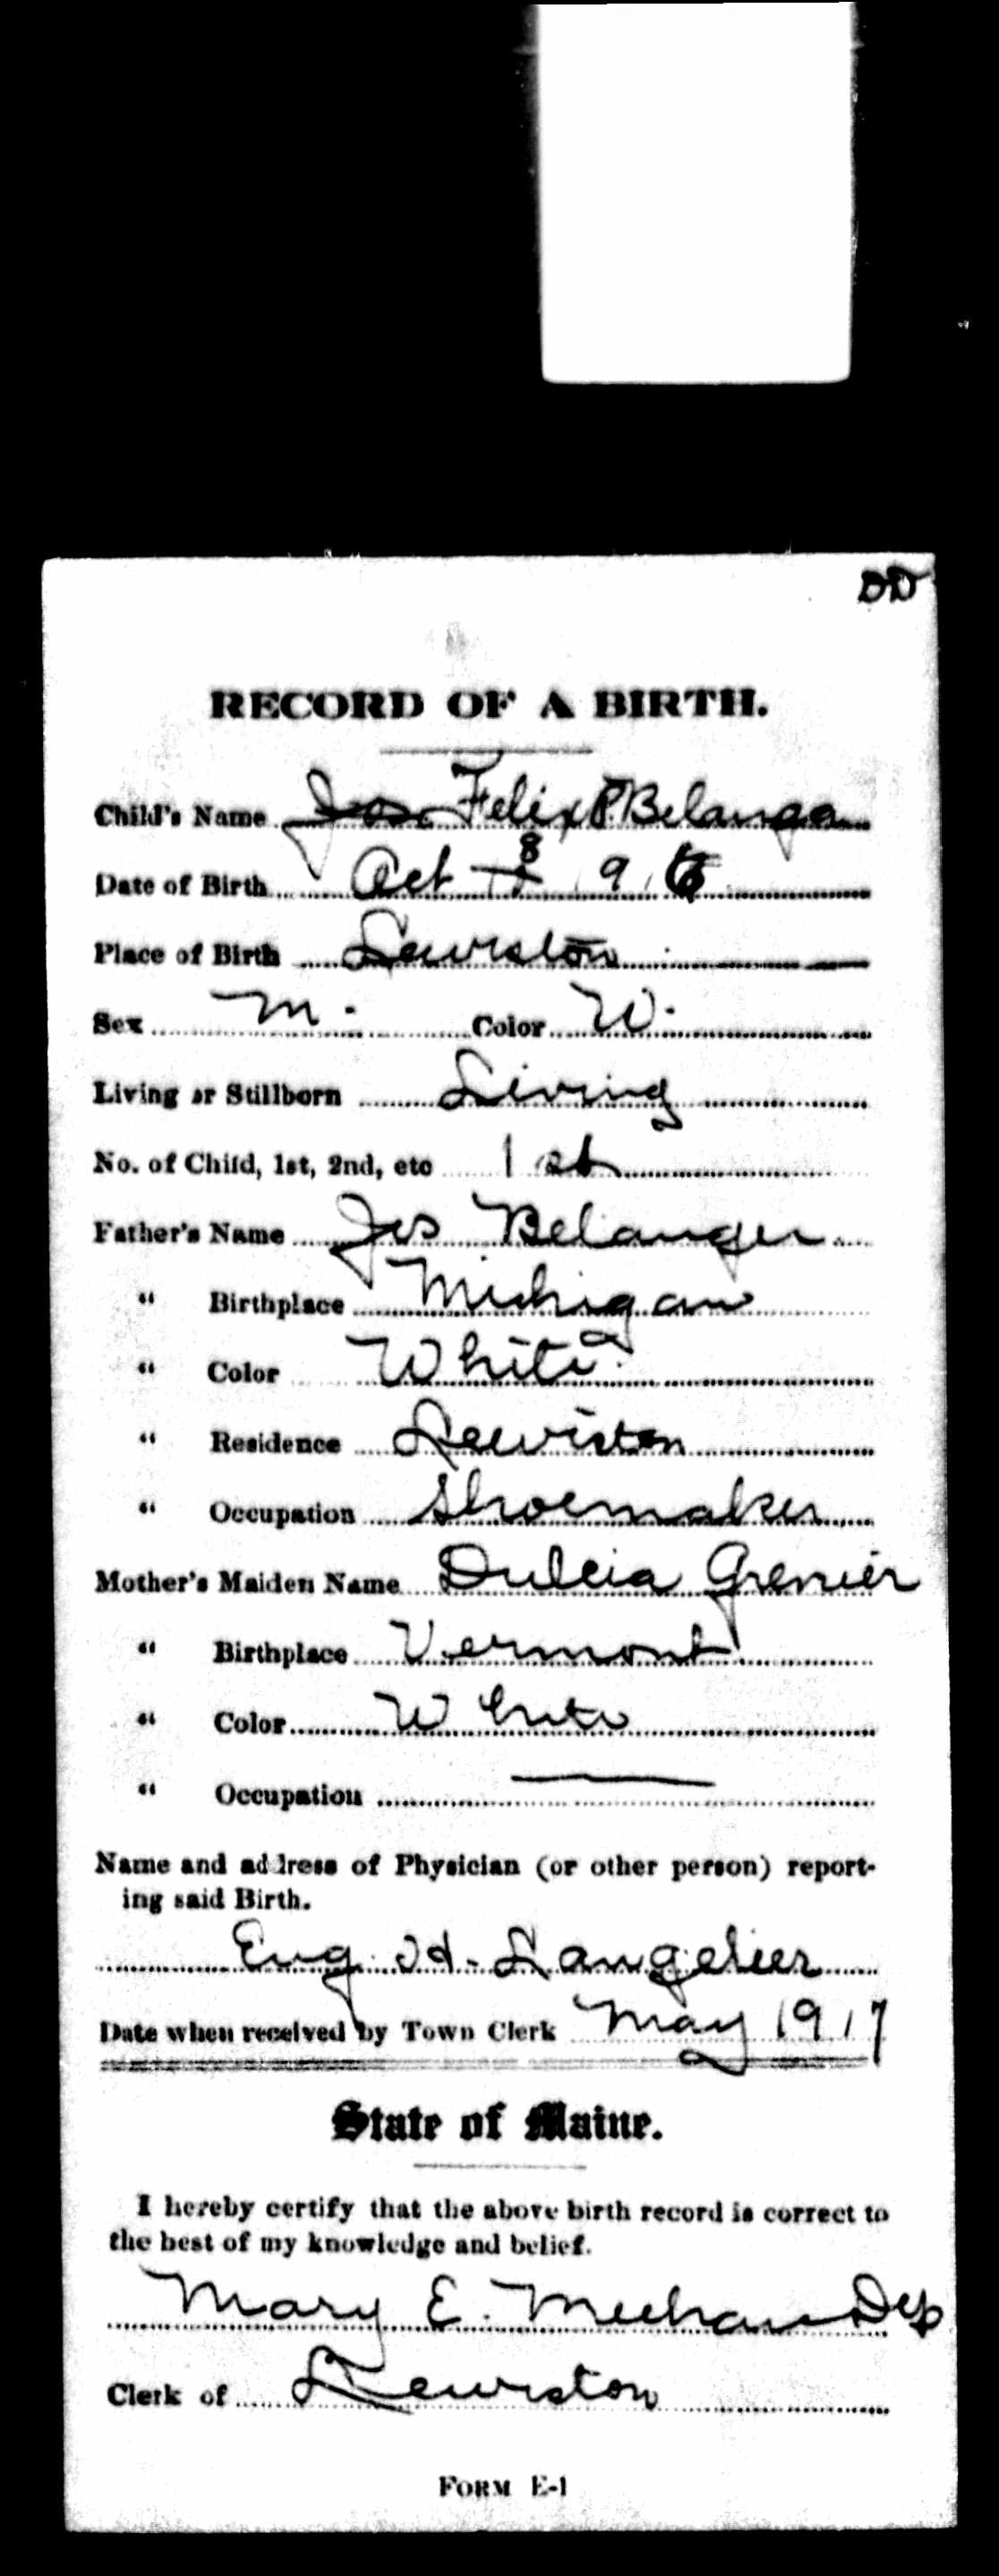 DD
RECORD OF A BIRTH.
Child's Name Jos. Felix P Belanger
Date of Birth Oct 8 1916
Place of Birth Lewiston
Sex M. Color W.
Living or Stillborn Living
No. of Child, 1st, 2nd, etc 1st
Father's Name Jos Belanger
" Birthplace Michigan
" Color White
" Residence Lewiston
" Occupation Shoemaker
Mother's Maiden Name Dulcia Grenier
" Birthplace Vermont
" Color White
" Occupation —
Name and address of Physician (or other person) report-
ing said Birth.
Eug. H. Langelier
Date when received by Town Clerk May 1917
State of Maine.
I hereby certify that the above birth record is correct to
the best of my knowledge and belief.
Mary E. Meehan Dep
Clerk of Lewiston
FORM E-1